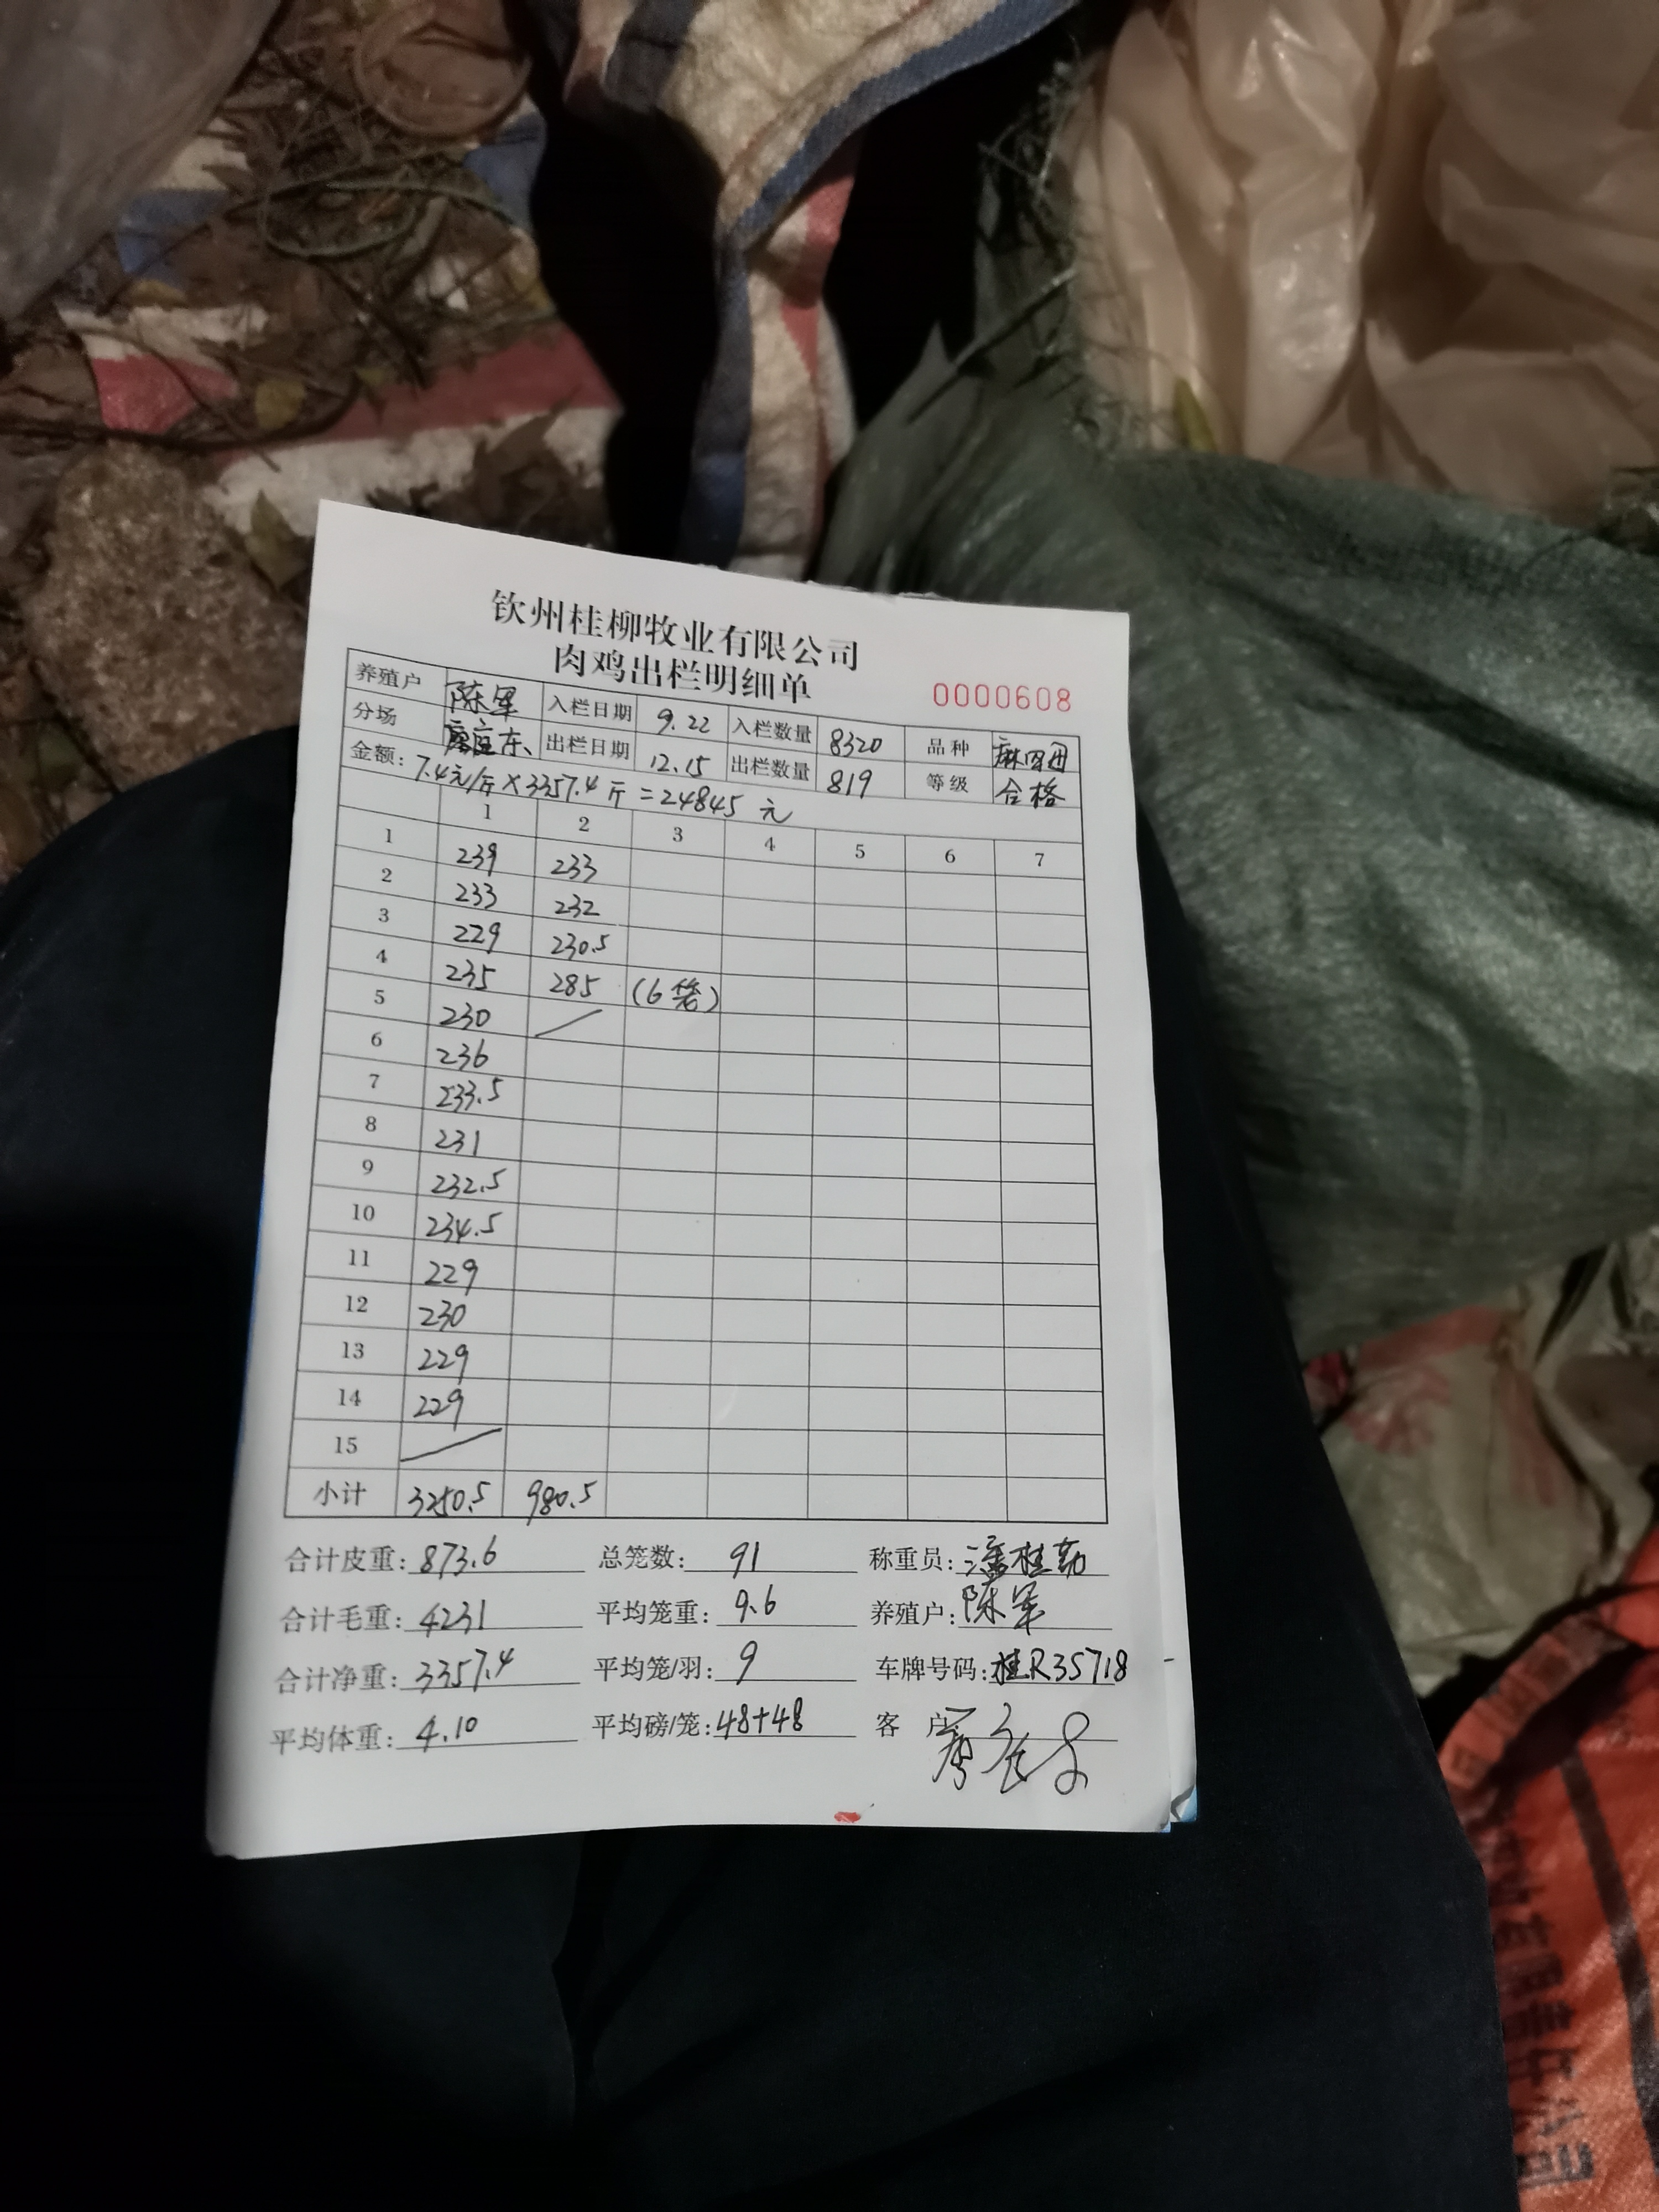 钦州桂柳牧业有限公司
肉鸡出栏明细单
0000608
养殖户 陈军 入栏日期 9.22 入栏数量 8320 品种 麻四田
分场 东 出栏日期 12.15 出栏数量 819 等级 合格
金额: 7.4元/斤×3357.4斤=24845元
1 2 3 4 5 6 7
1 239 233
2 233 232
3 229 230.5
4 235 285 (6笼)
5 230
6 236
7 233.5
8 231
9 232.5
10 234.5
11 229
12 230
13 229
14 229
15
小计 3250.5 980.5
合计皮重: 873.6 总笼数: 91 称重员: 潘桂
合计毛重: 4231 平均笼重: 9.6 养殖户: 陈军
合计净重: 3357.4 平均笼/羽: 9 车牌号码: 桂R35718
平均体重: 4.10 平均磅/笼: 48+48 客户